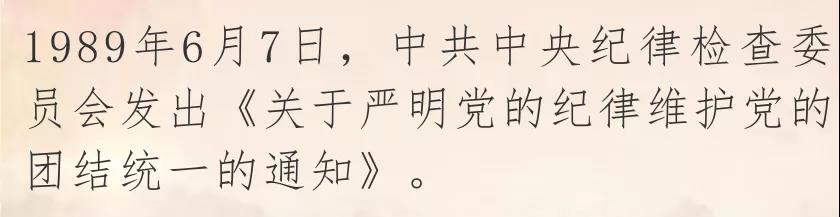 1989年6月7日，中共中央纪律检查委
员会发出《关于严明党的纪律维护党的
团结统一的通知》。